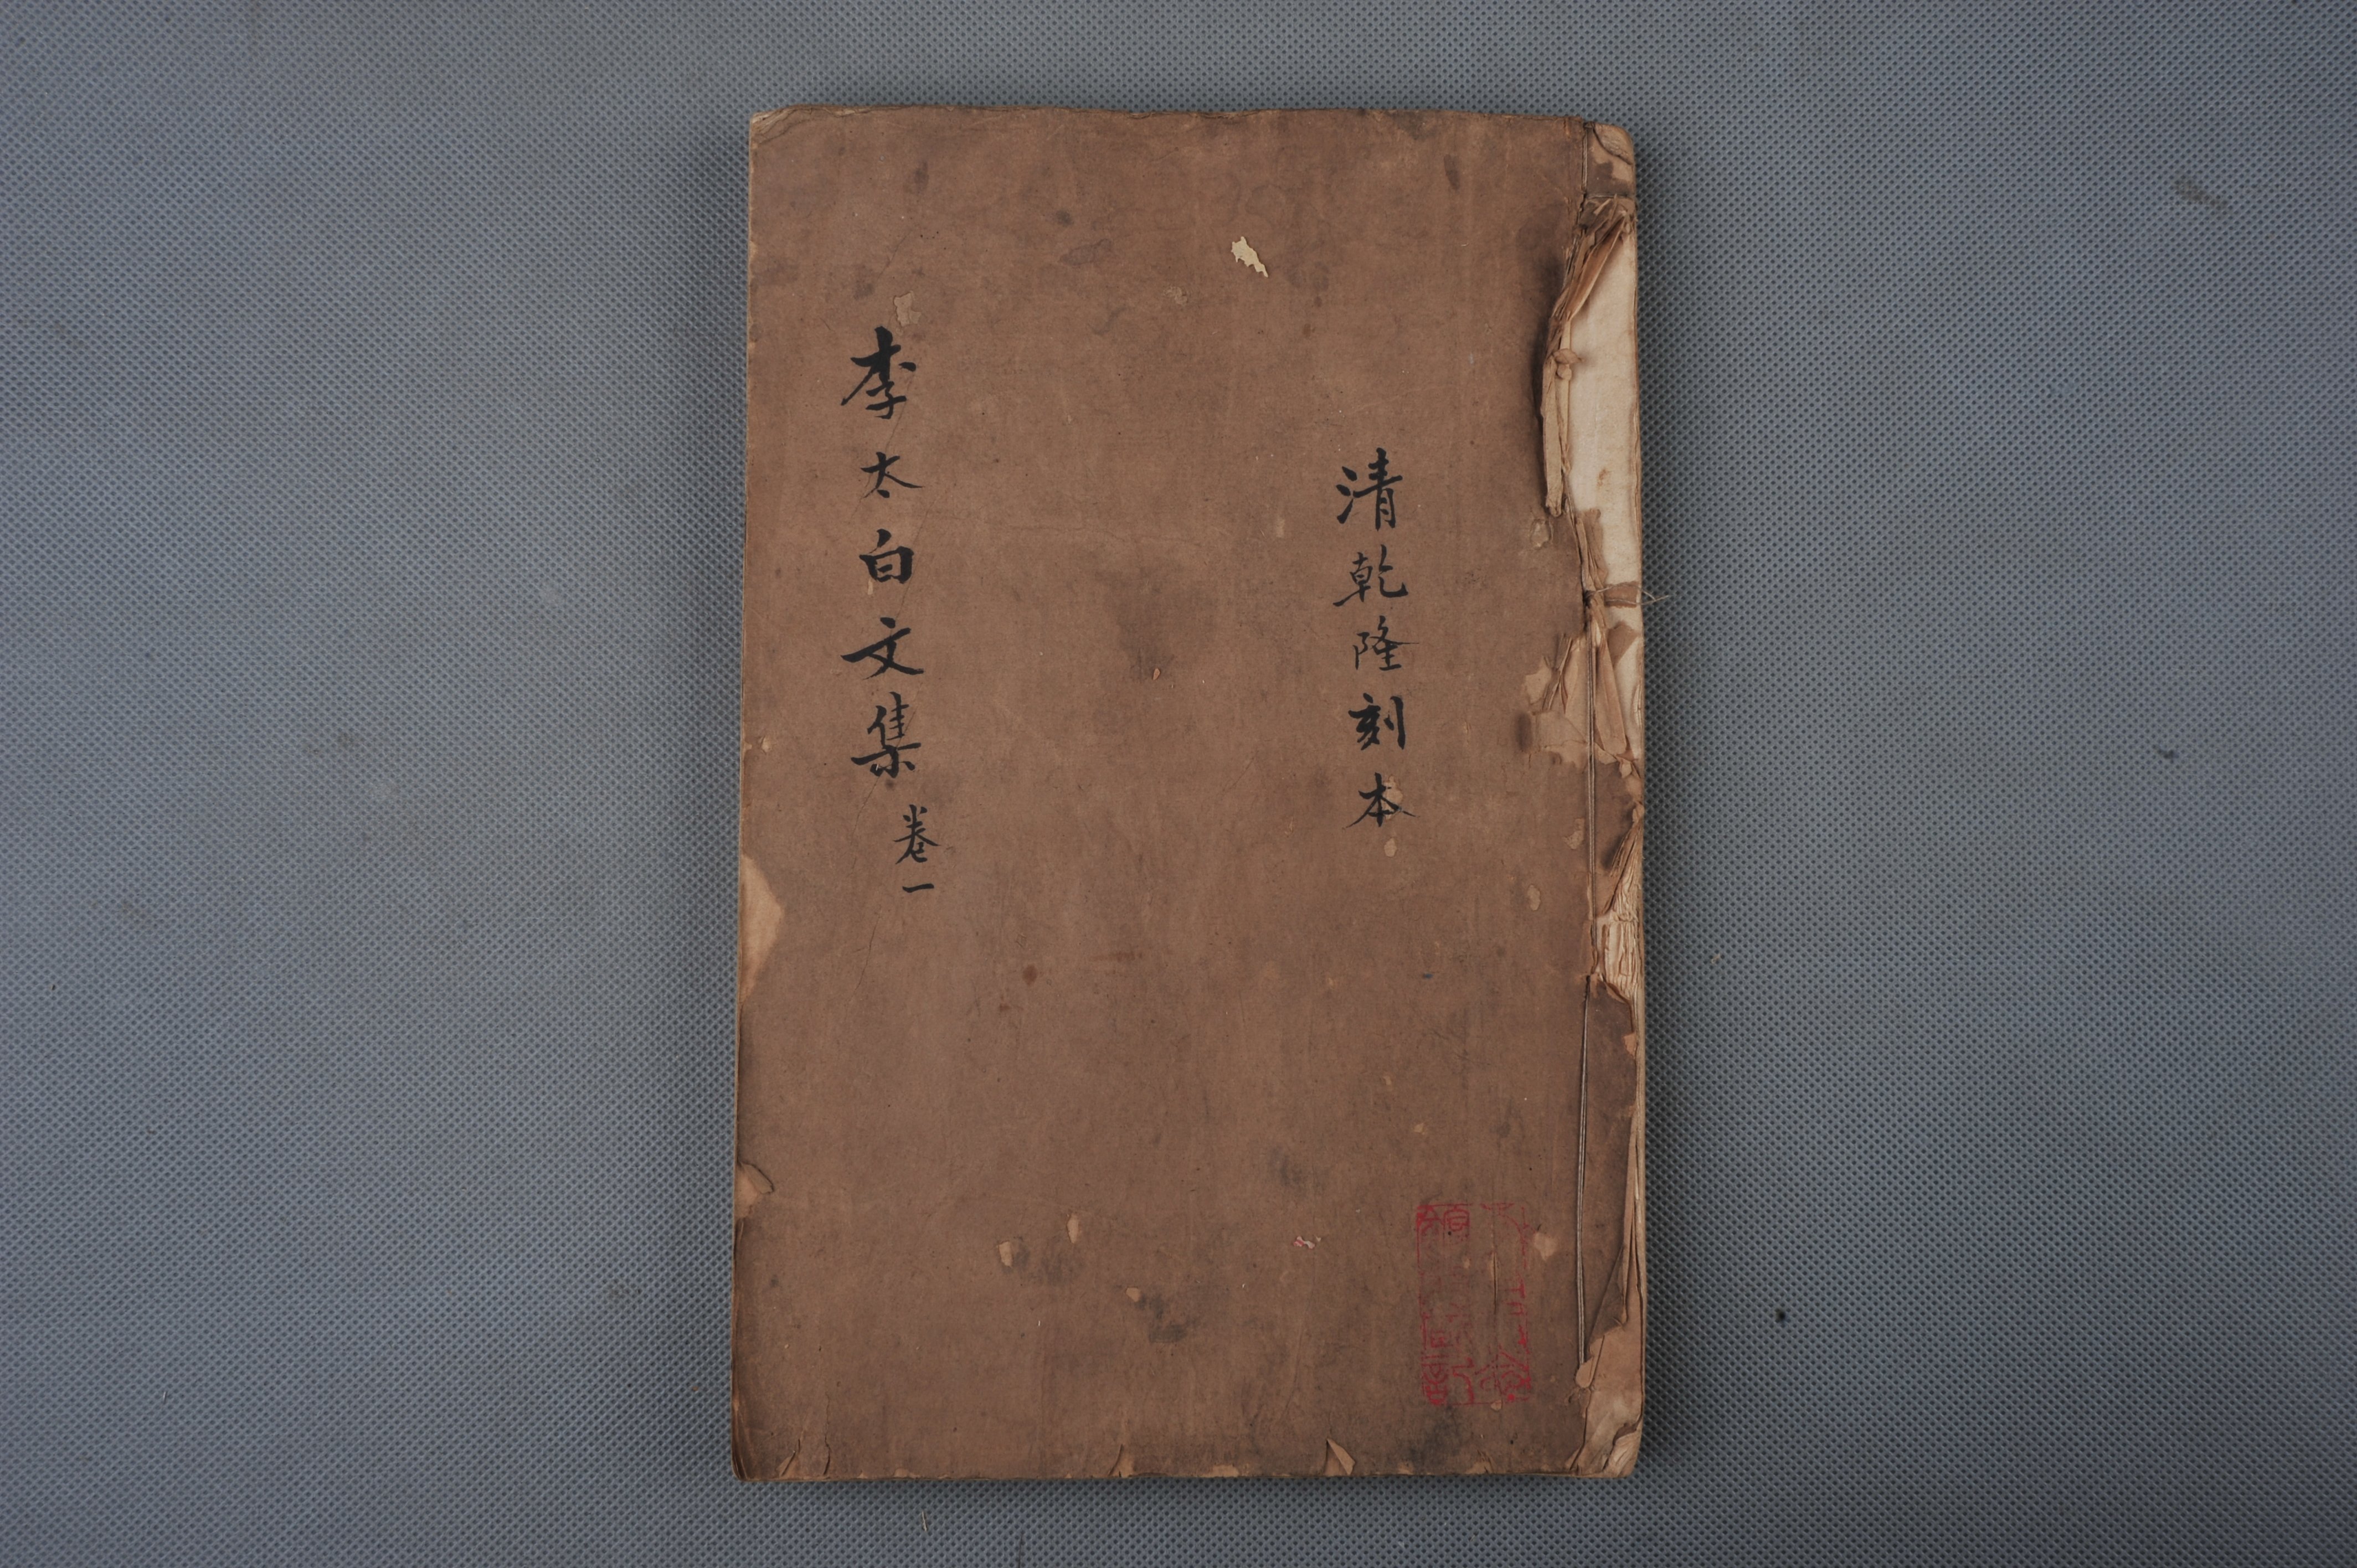 清乾隆刻本
李太白文集 卷一